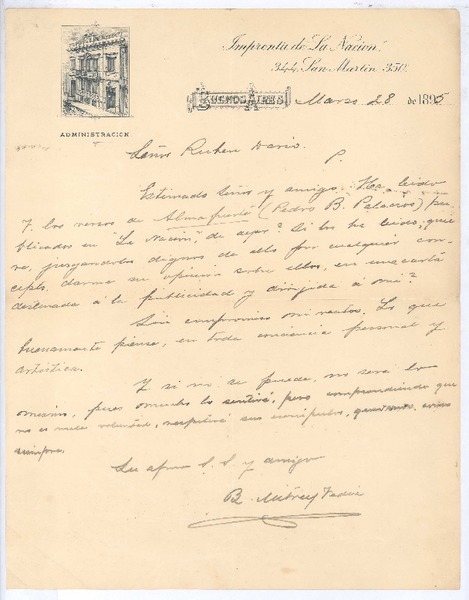 Imprenta de La Nación
344, San Martin 350
ADMINISTRACION
BUENOS AIRES, Marzo 28 de 1895
Señor Ruben Dario.
P.
Estimado Señor y amigo: Ha leido
V. los versos de Almafuerte (Pedro B. Palacios) pu-
blicados en "La Nacion", de ayer? Si los ha leido, quie-
re, juzgandolos dignos de ello por cualquier con-
cepto, darme su opinion sobre ellos, en una carta
destinada á la publicidad y dirijida á mi?
Sin compromiso ni Lo que
buenamente piense, en toda conciencia personal y
artística.
Y si no se puede, no será lo
mismo, pues mucho lo sentiré, pero comprendiendo que
no es mala voluntad, respetaré sus escrúpulos, quedando amigos
siempre.
Su afmo S. S. y amigo
B. Mitre y Vedia